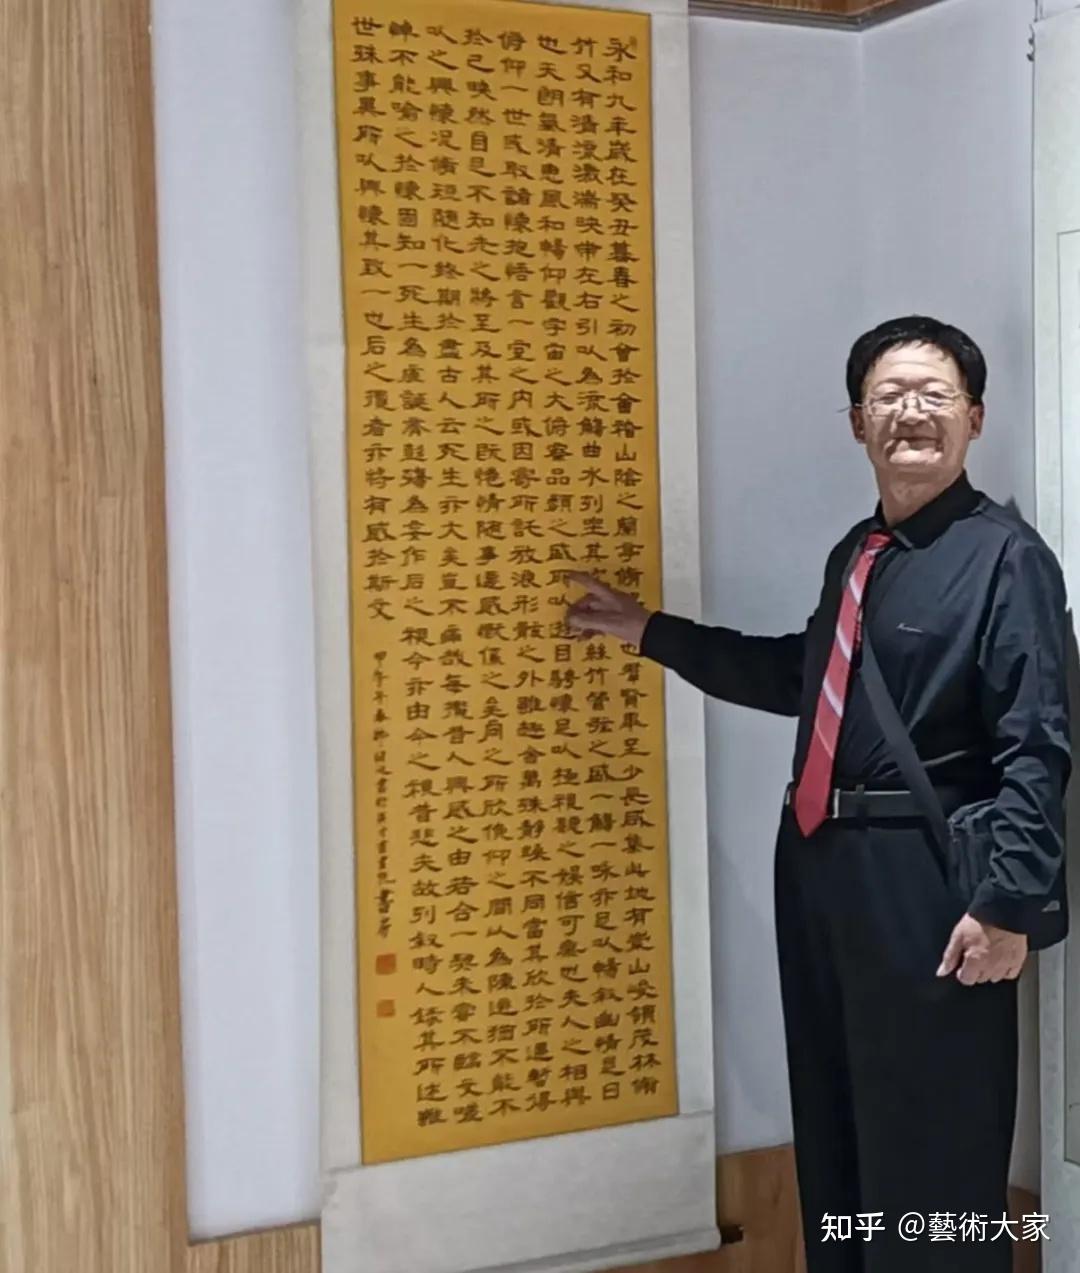 永和九年歲在癸丑暮春之初會於會稽山陰之蘭亭脩也羣賢畢至少長咸集此地有崇山峻領茂林脩
竹又有清流激湍映帶左右引以為流觴曲水列坐其絲竹管弦之盛一觴一詠亦足以暢敘幽情是日
也天朗氣清惠風和暢仰觀宇宙之大俯察品類之盛所以遊目騁懷足以極視聽之娛信可樂也夫人之相與
俯仰一世或取諸懷抱悟言一室之內或因寄所託放浪形骸之外雖趣舍萬殊靜躁不同當其欣於所遇暫得
於己快然自足不知老之將至及其所之既惓情隨事遷感慨係之矣向之所欣俛仰之間以為陳迹猶不能不
以之興懷況脩短隨化終期於盡古人云死生亦大矣豈不痛哉每覽昔人興感之由若合一契未嘗不臨文嗟
悼不能喻之於懷固知一死生為虛誕齊彭殤為妄作后之視今亦由今之視昔悲夫故列敘時人錄其所述雖
世殊事異所以興懷其致一也后之覽者亦將有感於斯文
甲午年春
知乎 @藝術大家